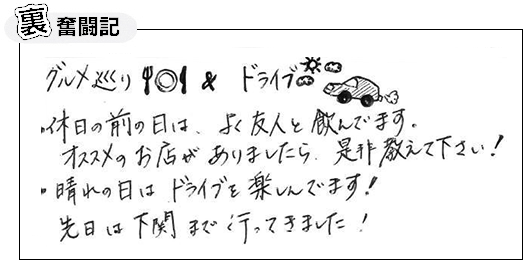 裏 奮闘記
グルメ巡り & ドライブ
・休日の前の日は、よく友人と飲んでます。
オススメのお店がありましたら、是非教えて下さい!
・晴れの日はドライブを楽しんでます!
先日は下関まで行ってきました!